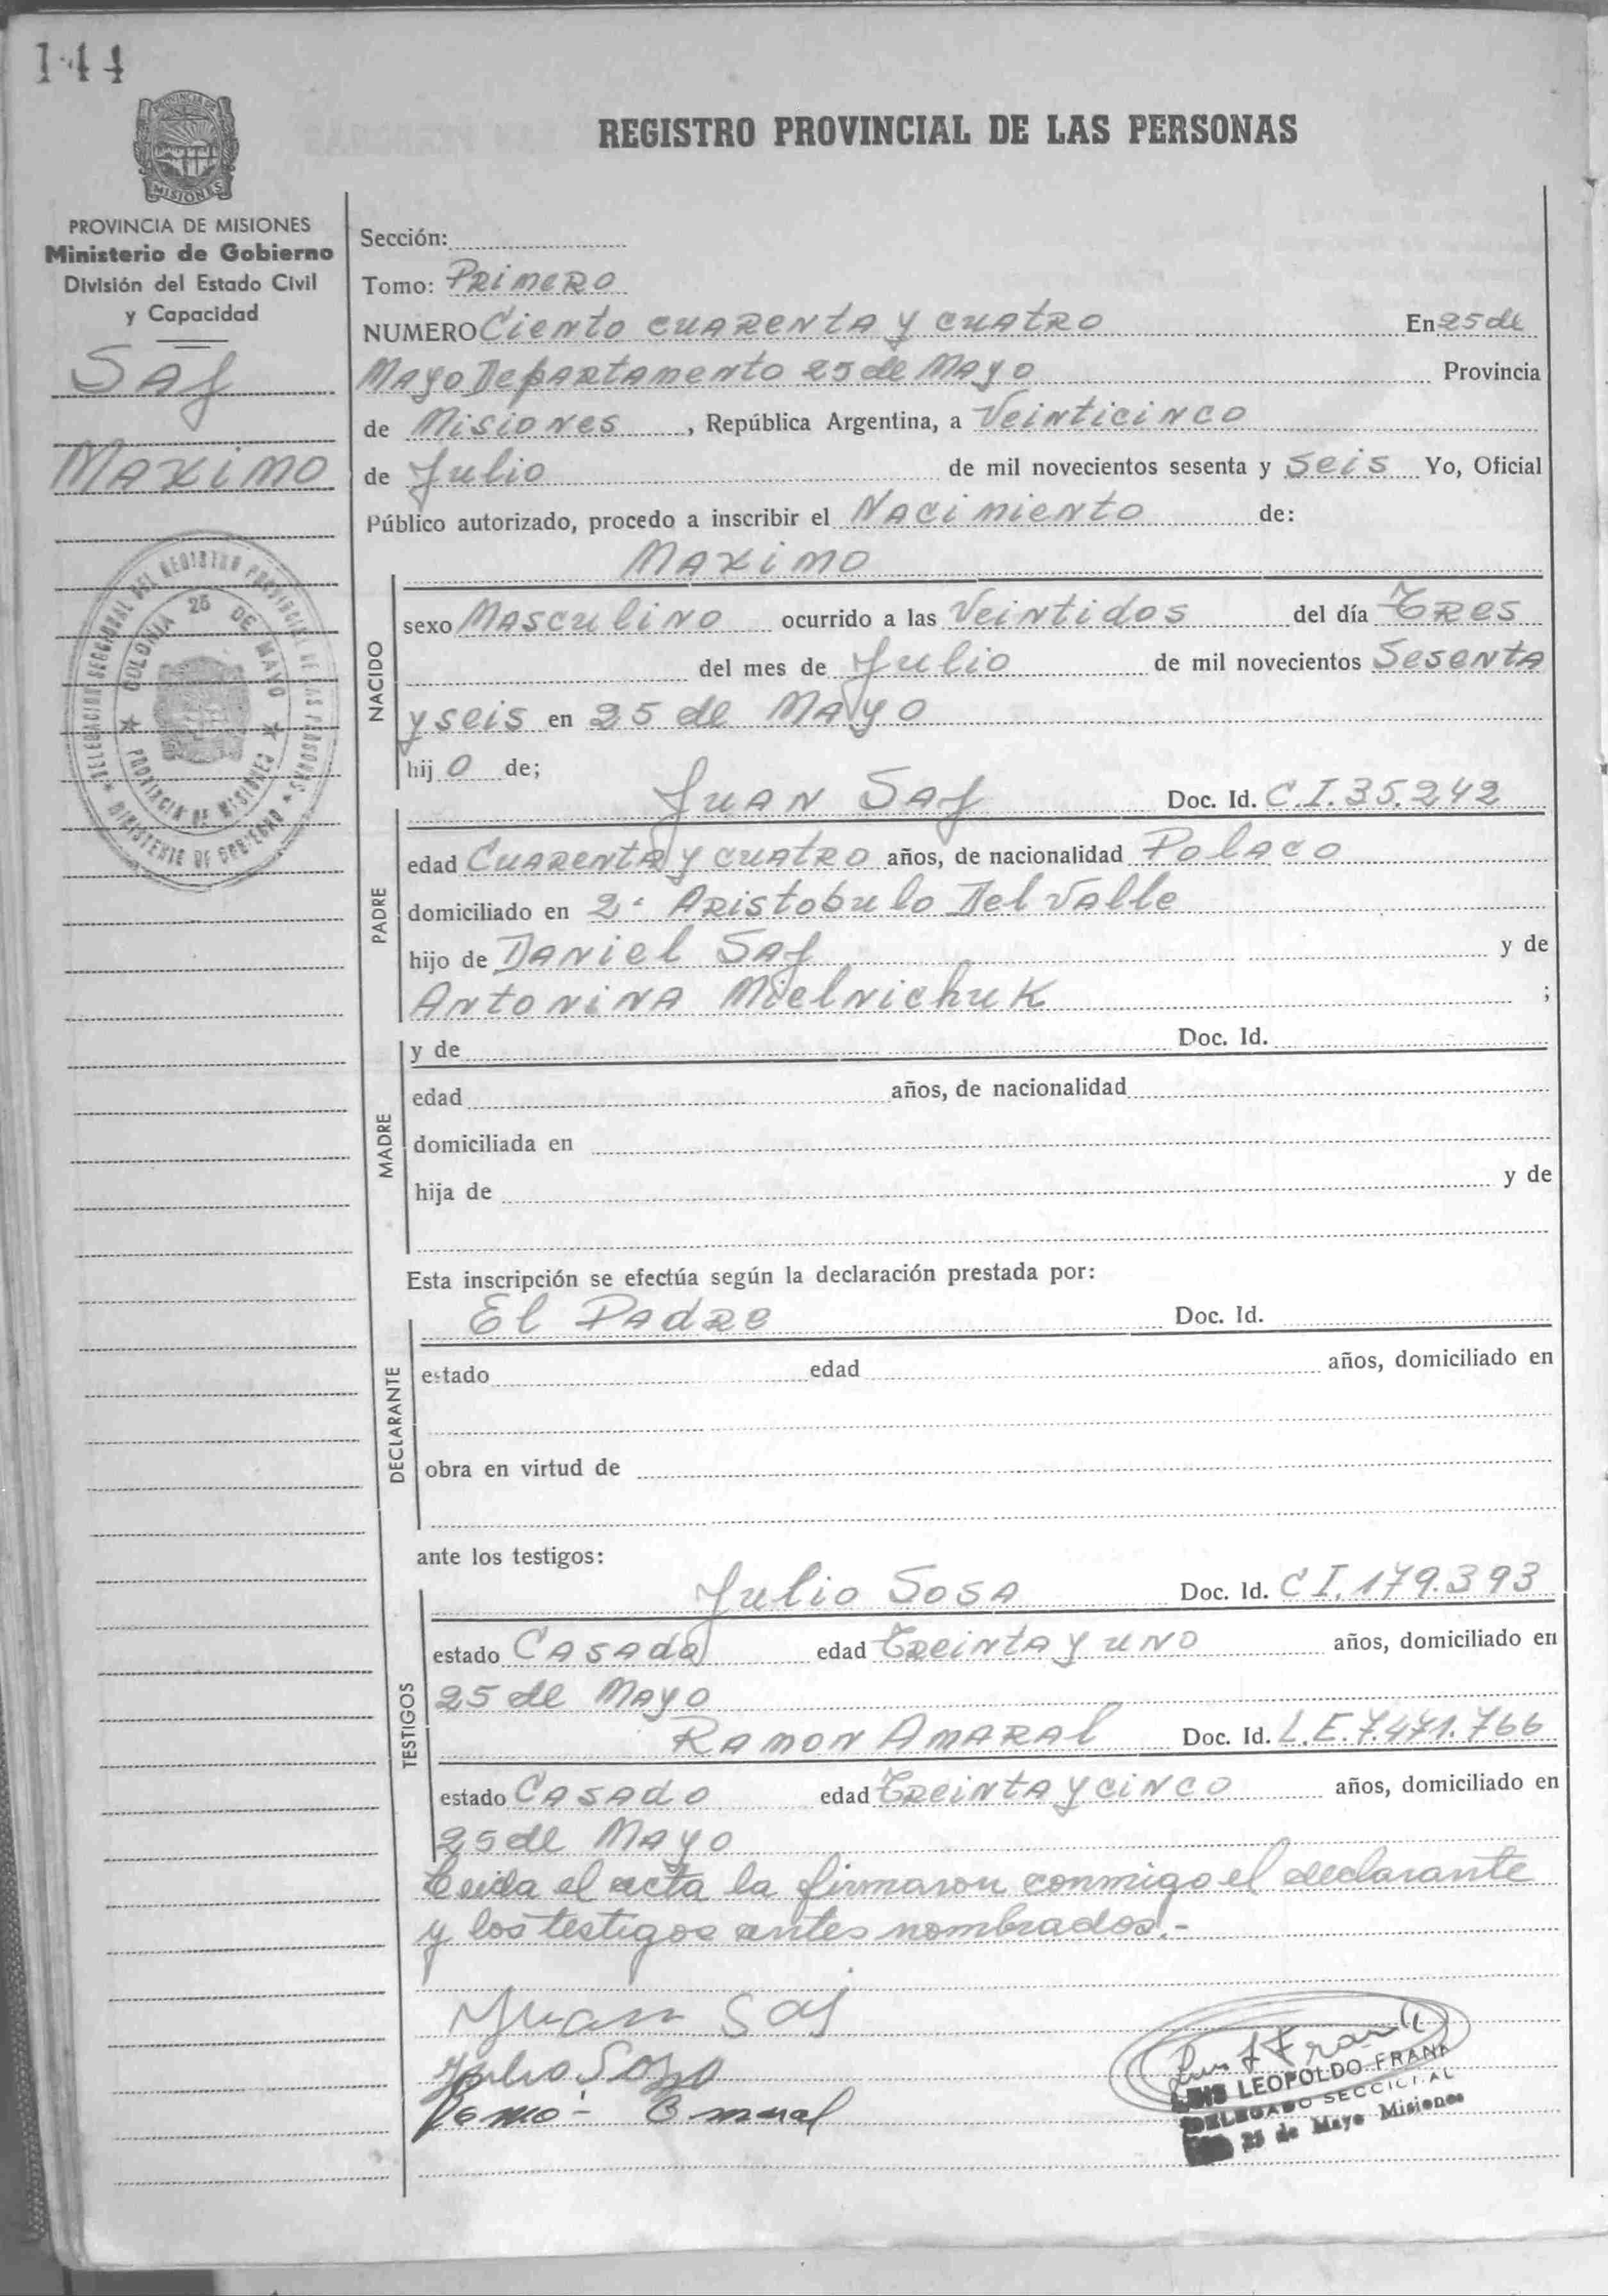 144
PROVINCIA DE
MISIONES
REGISTRO PROVINCIAL DE LAS PERSONAS
PROVINCIA DE MISIONES
Ministerio de Gobierno
División del Estado Civil
y Capacidad
Saj
Maximo
DELEGACION SECCIONAL DEL REGISTRO PROVINCIAL DE LAS PERSONAS
MINISTERIO DE GOBIERNO
COLONIA 25 DE MAYO
PROVINCIA DE MISIONES
Sección:
Tomo: Primero
NUMERO Ciento cuarenta y cuatro En 25 de
Mayo Departamento 25 de Mayo Provincia
de Misiones, República Argentina, a Veinticinco
de Julio de mil novecientos sesenta y seis Yo, Oficial
Público autorizado, procedo a inscribir el Nacimiento de:
Maximo
NACIDO
sexo Masculino ocurrido a las Veintidos del día Tres
del mes de Julio de mil novecientos Sesenta
y seis en 25 de Mayo
hijo de;
Juan Saj Doc. Id. C.I. 35.242
PADRE
edad Cuarenta y cuatro años, de nacionalidad Polaco
domiciliado en 2· Aristobulo Del Valle
hijo de Daniel Saj y de
Antonina Mielnichuk ;
y de Doc. Id.
MADRE
edad años, de nacionalidad
domiciliada en
hija de y de
Esta inscripción se efectúa según la declaración prestada por:
El Padre Doc. Id.
DECLARANTE
estado edad años, domiciliado en
obra en virtud de
ante los testigos:
TESTIGOS
Julio Sosa Doc. Id. C I. 179.393
estado Casado edad Treinta y uno años, domiciliado en
25 de Mayo
Ramon Amaral Doc. Id. L.E. 7.471.766
estado Casado edad Treinta y cinco años, domiciliado en
25 de Mayo
Leida el acta la firmaron conmigo el declarante
y los testigos antes nombrados.-
Juan Saj
Julio Sosa
Luis L Frank
LUIS LEOPOLDO FRANK
DELEGADO SECCIONAL
25 de Mayo Misiones